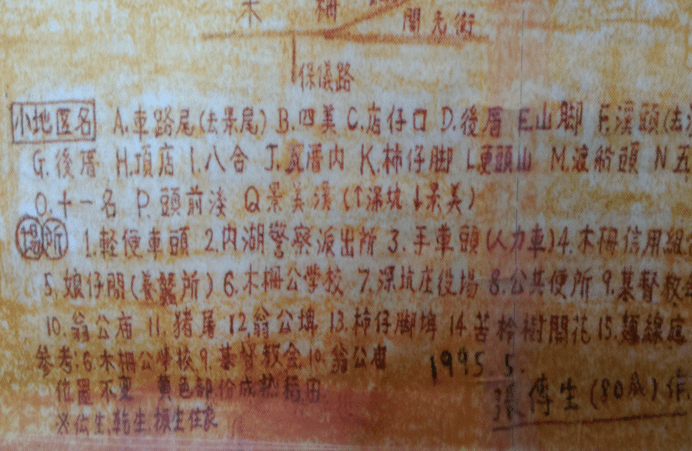 木 柵
開元街
保儀路
小地区名 A.車路尾(去景尾) B.四美 C.店仔口 D.後厝 E.山脚 F.溪頭(去
G.後厝 H.頂店 I.八合 J.瓦厝内 K.柿仔脚 L.更頭山 M.渡船頭 N五
O.十一名 P.頭前淺 Q景美溪(↑深坑↓景美)
場所 1.輕便車頭 2.内湖警察派出所 3.手車頭(人力車)4.木柵信用組
5.娘仔間(養蠶所) 6.木柵公學校 7.深坑庄役場 8.公共便所 9.基督教
10.翁公庙 11.猪屠 12.翁公埤 13.柿仔脚埤 14苦柃樹開花 15.麵線庭
參考:6.木柵公學校9.基督教会10.翁公庙
1995 5.
位置不変 黄色部份成熟稻田
張傳生(80歲)作
※伝生.乾生.振生住家